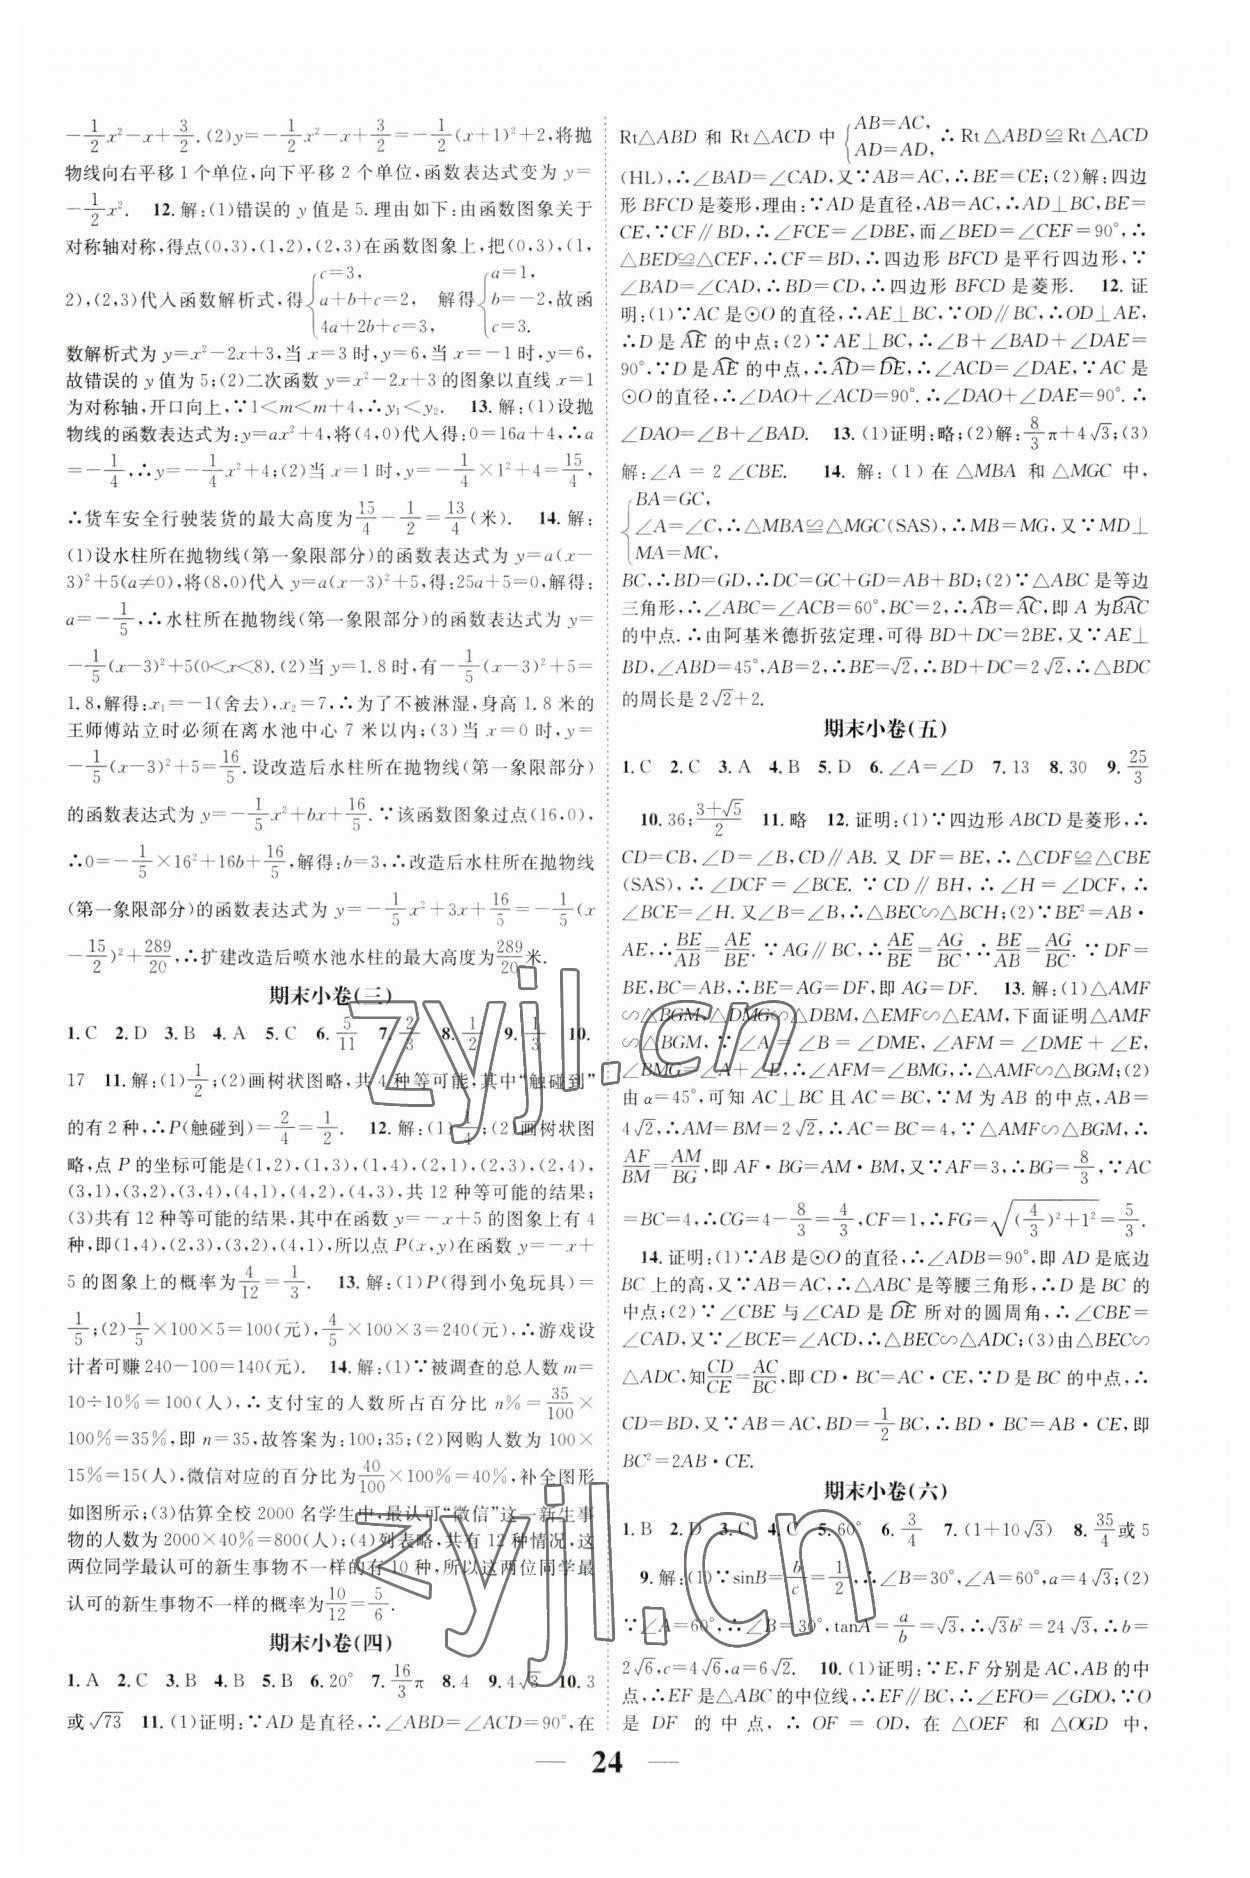 -\frac{1}{2}x²-x+\frac{3}{2}.(2)y=-\frac{1}{2}x²-x+\frac{3}{2}=-\frac{1}{2}(x+1)²+2,将抛
物线向右平移1个单位,向下平移2个单位,函数表达式变为y=
-\frac{1}{2}x². 12.解:(1)错误的y值是5.理由如下:由函数图象关于
对称轴对称,得点(0,3),(1,2),(2,3)在函数图象上,把(0,3),(1,
2),(2,3)代入函数解析式,得{c=3, a+b+c=2, 4a+2b+c=3, 解得{a=1, b=-2, c=3. 故函
数解析式为y=x²-2x+3,当x=3时,y=6,当x=-1时,y=6,
故错误的y值为5;(2)二次函数y=x²-2x+3的图象以直线x=1
为对称轴,开口向上,∵1<m<m+4,∴y₁<y₂. 13.解:(1)设抛
物线的函数表达式为:y=ax²+4,将(4,0)代入得:0=16a+4,∴a
=-\frac{1}{4},∴y=-\frac{1}{4}x²+4;(2)当x=1时,y=-\frac{1}{4}×1²+4=\frac{15}{4},
∴货车安全行驶装货的最大高度为\frac{15}{4}-\frac{1}{2}=\frac{13}{4}(米). 14.解:
(1)设水柱所在抛物线(第一象限部分)的函数表达式为y=a(x-
3)²+5(a≠0),将(8,0)代入y=a(x-3)²+5,得:25a+5=0,解得:
a=-\frac{1}{5},∴水柱所在抛物线(第一象限部分)的函数表达式为y=
-\frac{1}{5}(x-3)²+5(0<x<8).(2)当y=1.8时,有-\frac{1}{5}(x-3)²+5=
1.8,解得:x₁=-1(舍去),x₂=7,∴为了不被淋湿,身高1.8米的
王师傅站立时必须在离水池中心7米以内;(3)当x=0时,y=
-\frac{1}{5}(x-3)²+5=\frac{16}{5}.设改造后水柱所在抛物线(第一象限部分)
的函数表达式为y=-\frac{1}{5}x²+bx+\frac{16}{5}.∵该函数图象过点(16,0),
∴0=-\frac{1}{5}×16²+16b+\frac{16}{5},解得:b=3,∴改造后水柱所在抛物线
(第一象限部分)的函数表达式为y=-\frac{1}{5}x²+3x+\frac{16}{5}=-\frac{1}{5}(x
-\frac{15}{2})²+\frac{289}{20},∴扩建改造后喷水池水柱的最大高度为\frac{289}{20}米.
期末小卷(三)
1.C 2.D 3.B 4.A 5.C 6.\frac{5}{11} 7.\frac{2}{3} 8.\frac{1}{2} 9.\frac{1}{3} 10.
17 11.解:(1)\frac{1}{2};(2)画树状图略,共4种等可能,其中“触碰到”
的有2种,∴P(触碰到)=\frac{2}{4}=\frac{1}{2}. 12.解:(1)\frac{1}{4};(2)画树状图
略,点P的坐标可能是(1,2),(1,3),(1,4),(2,1),(2,3),(2,4),
(3,1),(3,2),(3,4),(4,1),(4,2),(4,3),共12种等可能的结果;
(3)共有12种等可能的结果,其中在函数y=-x+5的图象上的有4
种,即(1,4),(2,3),(3,2),(4,1),所以点P(x,y)在函数y=-x+
5的图象上的概率为\frac{4}{12}=\frac{1}{3}. 13.解:(1)P(得到小兔玩具)=
\frac{1}{5};(2)\frac{1}{5}×100×5=100(元),\frac{4}{5}×100×3=240(元),∴游戏设
计者可赚240-100=140(元). 14.解:(1)∵被调查的总人数m=
10÷10%=100(人),∴支付宝的人数所占百分比n%=\frac{35}{100}×
100%=35%,即n=35,故答案为:100;35;(2)网购人数为100×
15%=15(人),微信对应的百分比为\frac{40}{100}×100%=40%,补全图形
如图所示;(3)估算全校2000名学生中,最认可“微信”这一新生事
物的人数为2000×40%=800(人);(4)列表略,共有12种情况,这
两位同学最认可的新生事物不一样的有10种,所以这两位同学最
认可的新生事物不一样的概率为\frac{10}{12}=\frac{5}{6}.
期末小卷(四)
1.A 2.C 3.B 4.B 5.B 6.20° 7.\frac{16}{3}π 8.4 9.4√3 10.3
或√73 11.(1)证明:∵AD是直径,∴∠ABD=∠ACD=90°,在
Rt△ABD和Rt△ACD中{AB=AC, AD=AD, ∴Rt△ABD≌Rt△ACD
(HL),∴∠BAD=∠CAD,又∵AB=AC,∴BE=CE;(2)解:四边
形BFCD是菱形,理由:∵AD是直径,AB=AC,∴AD⊥BC,BE=
CE,∵CF∥BD,∴∠FCE=∠DBE,而∠BED=∠CEF=90°,∴
△BED≌△CEF,∴CF=BD,∴四边形BFCD是平行四边形,∵
∠BAD=∠CAD,∴BD=CD,∴四边形BFCD是菱形. 12.证
明:(1)∵AC是⊙O的直径,∴AE⊥BC,∵OD∥BC,∴OD⊥AE,
∴D是⌒AE的中点;(2)∵AE⊥BC,∴∠B+∠BAD+∠DAE=
90°,∵D是⌒AE的中点,∴⌒AD=⌒DE,∴∠ACD=∠DAE,∵AC是
⊙O的直径,∴∠DAO+∠ACD=90°.∴∠DAO+∠DAE=90°.∴
∠DAO=∠B+∠BAD. 13.(1)证明:略;(2)解:\frac{8}{3}π+4√3;(3)
解:∠A=2∠CBE. 14.解:(1)在△MBA和△MGC中,
{BA=GC, ∠A=∠C, MA=MC, ∴△MBA≌△MGC(SAS),∴MB=MG,又∵MD⊥
BC,∴BD=GD,∴DC=GC+GD=AB+BD;(2)∵△ABC是等边
三角形,∴∠ABC=∠ACB=60°,BC=2,∴⌒AB=⌒AC,即A为⌒BAC
的中点.∴由阿基米德折弦定理,可得BD+DC=2BE,又∵AE⊥
BD,∠ABD=45°,AB=2,∴BE=√2,∴BD+DC=2√2,∴△BDC
的周长是2√2+2.
期末小卷(五)
1.C 2.C 3.A 4.B 5.D 6.∠A=∠D 7.13 8.30 9.\frac{25}{3}
10.36;\frac{3+√5}{2} 11.略 12.证明:(1)∵四边形ABCD是菱形,∴
CD=CB,∠D=∠B,CD∥AB.又DF=BE,∴△CDF≌△CBE
(SAS),∴∠DCF=∠BCE.∵CD∥BH,∴∠H=∠DCF,∴
∠BCE=∠H.又∠B=∠B,∴△BEC∽△BCH;(2)∵BE²=AB·
AE,∴\frac{BE}{AB}=\frac{AE}{BE}.∵AG∥BC,∴\frac{AE}{BE}=\frac{AG}{BC},∴\frac{BE}{AB}=\frac{AG}{BC}.∵DF=
BE,BC=AB,∴BE=AG=DF,即AG=DF. 13.解:(1)△AMF
∽△BGM,△DMG∽△DBM,△EMF∽△EAM,下面证明△AMF
∽△BGM,∵∠A=∠B=∠DME,∠AFM=∠DME+∠E,
∠BMG=∠A+∠E,∴∠AFM=∠BMG,∴△AMF∽△BGM;(2)
由α=45°,可知AC⊥BC且AC=BC,∵M为AB的中点,AB=
4√2,∴AM=BM=2√2,∴AC=BC=4,∵△AMF∽△BGM,∴
\frac{AF}{BM}=\frac{AM}{BG},即AF·BG=AM·BM,又∵AF=3,∴BG=\frac{8}{3},∵AC
=BC=4,∴CG=4-\frac{8}{3}=\frac{4}{3},CF=1,∴FG=√((\frac{4}{3})²+1²)=\frac{5}{3}.
14.证明:(1)∵AB是⊙O的直径,∴∠ADB=90°,即AD是底边
BC上的高,又∵AB=AC,∴△ABC是等腰三角形,∴D是BC的
中点;(2)∵∠CBE与∠CAD是⌒DE所对的圆周角,∴∠CBE=
∠CAD,又∵∠BCE=∠ACD,∴△BEC∽△ADC;(3)由△BEC∽
△ADC,知\frac{CD}{CE}=\frac{AC}{BC},即CD·BC=AC·CE,∵D是BC的中点,∴
CD=BD,又∵AB=AC,BD=\frac{1}{2}BC,∴BD·BC=AB·CE,即
BC²=2AB·CE.
期末小卷(六)
1.B 2.D 3.C 4.C 5.60° 6.\frac{3}{4} 7.(1+10√3) 8.\frac{35}{4}或5
9.解:(1)∵sinB=\frac{b}{c}=\frac{1}{2},∴∠B=30°,∠A=60°,a=4√3;(2)
∵∠A=60°,∴∠B=30°,tanA=\frac{a}{b}=√3,∴√3b²=24√3,∴b=
2√6,c=4√6,a=6√2. 10.(1)证明:∵E,F分别是AC,AB的中
点,∴EF是△ABC的中位线,∴EF∥BC,∴∠EFO=∠GDO,∵O
是DF的中点,∴OF=OD,在△OEF和△OGD中,
24
zyjl.cn
zyjl.cn